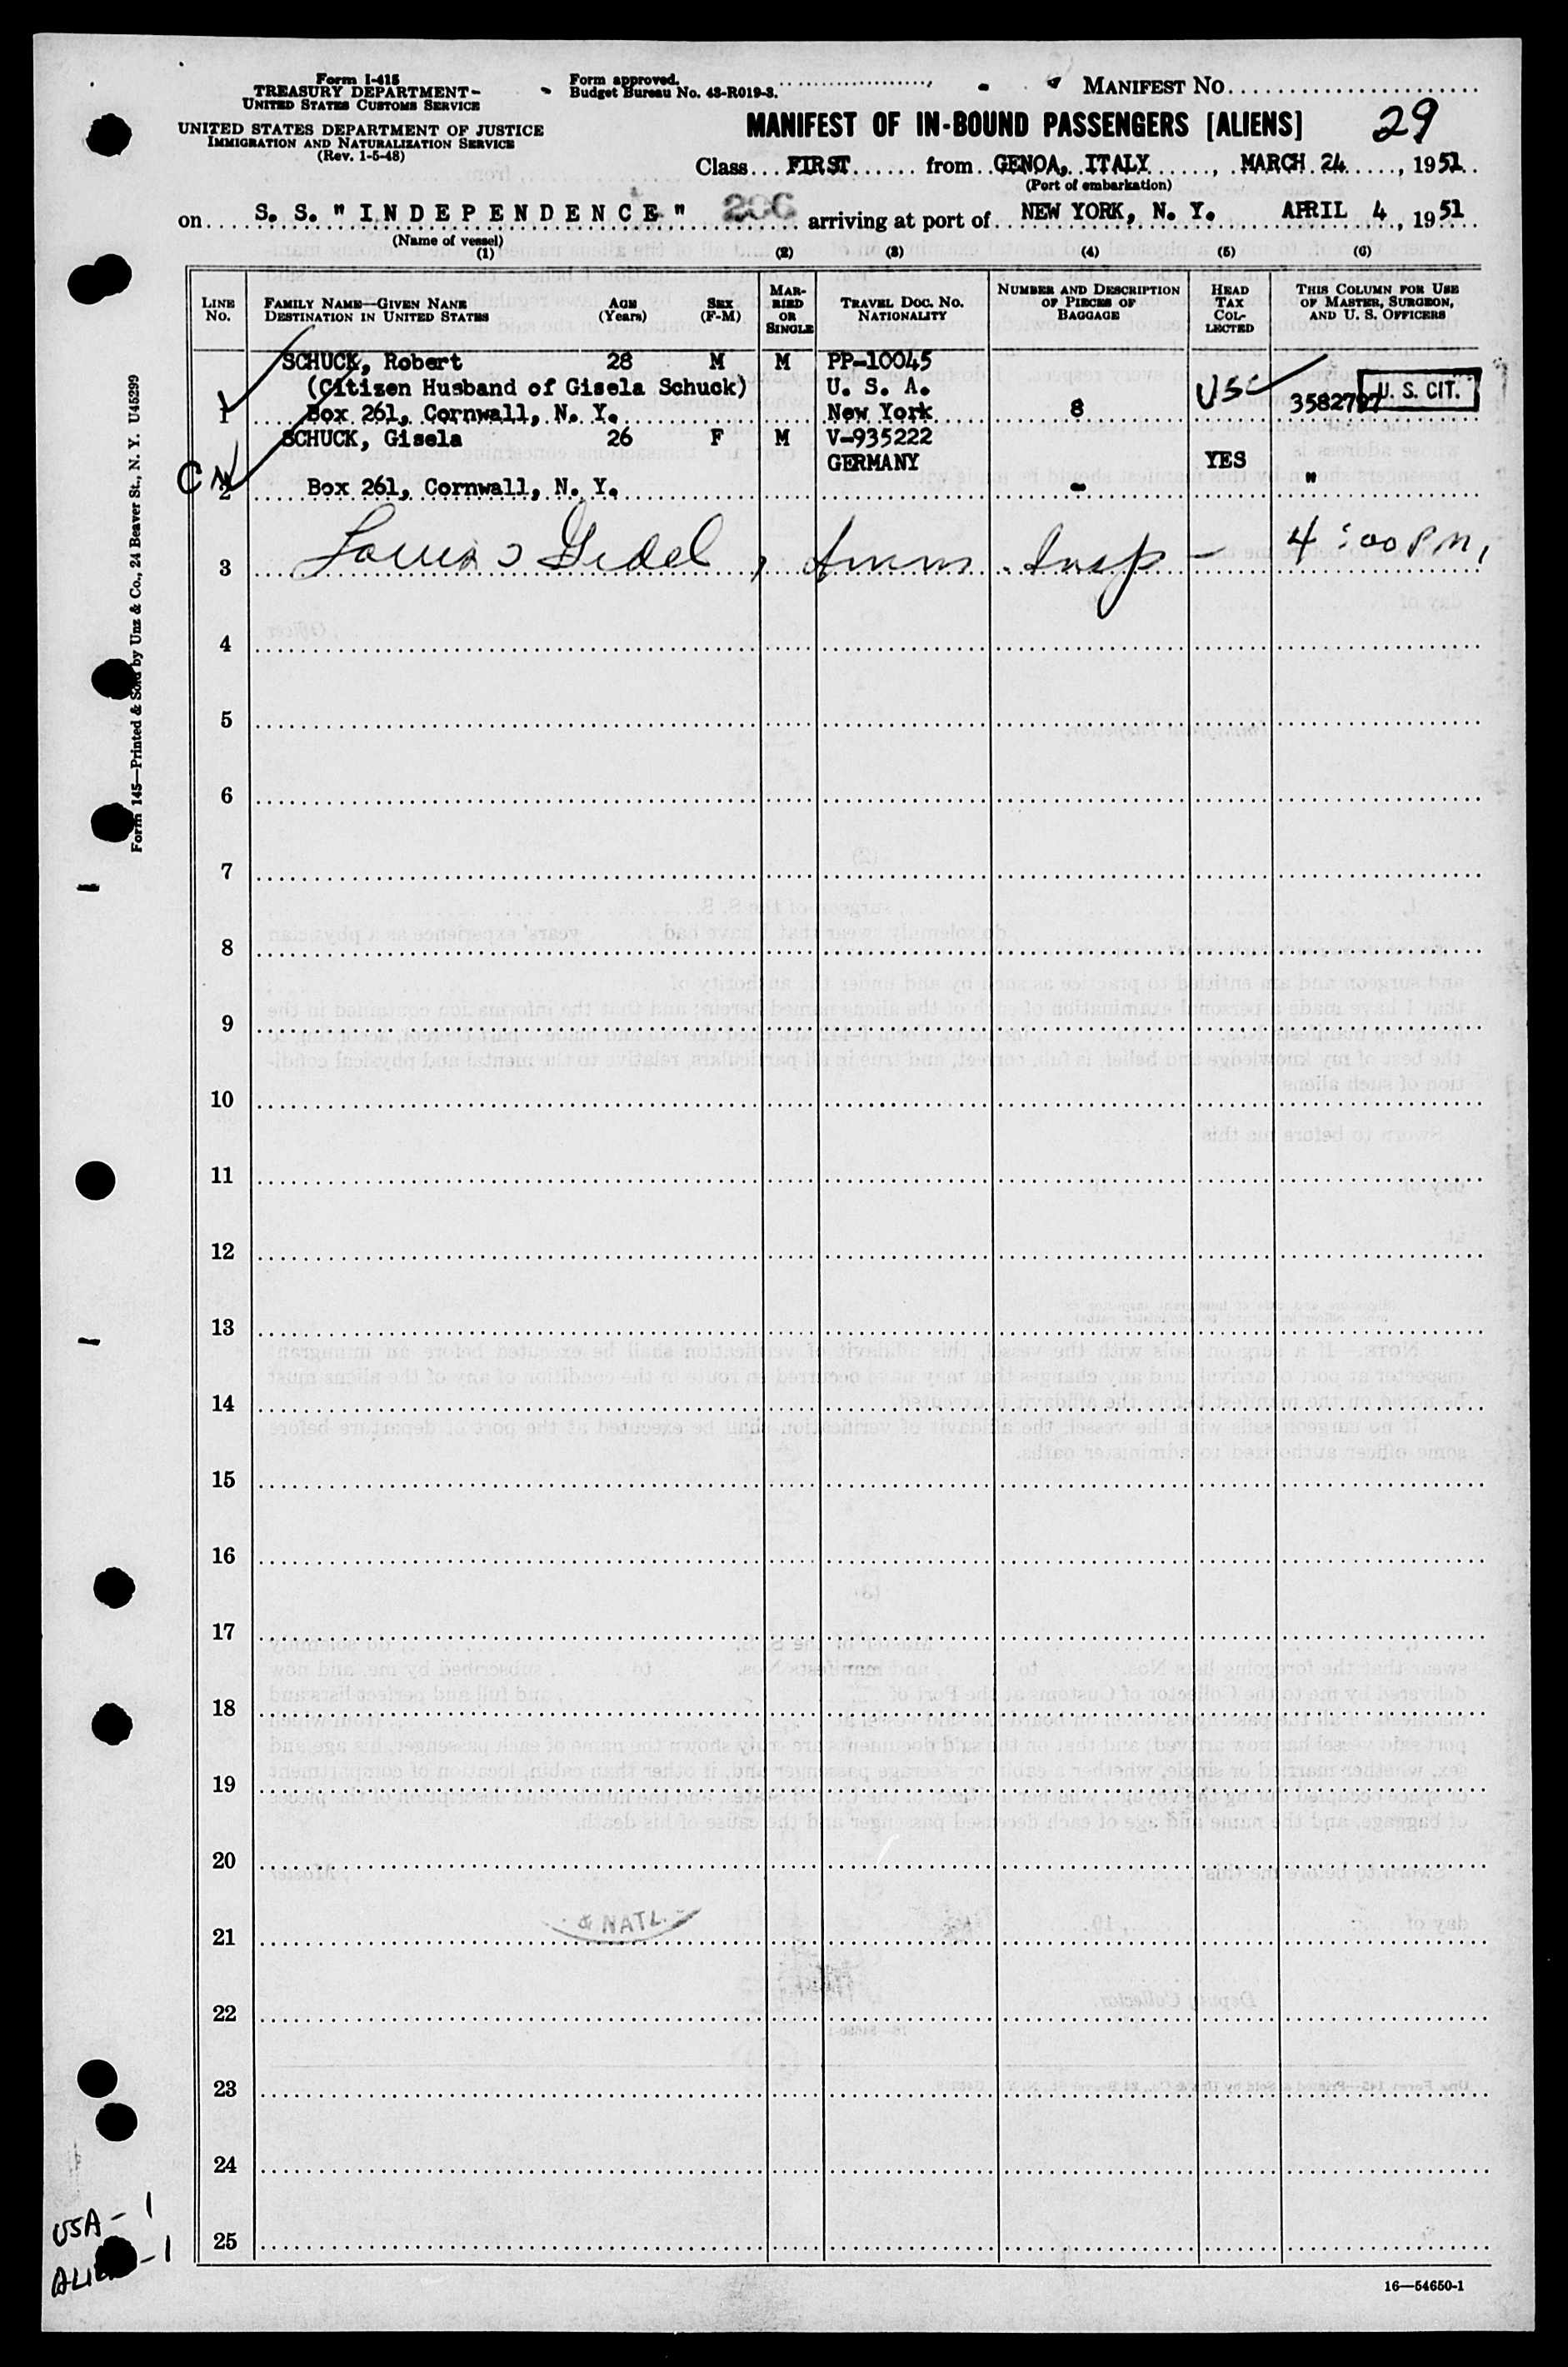 Form I-415
TREASURY DEPARTMENT-
UNITED STATES CUSTOMS SERVICE
UNITED STATES DEPARTMENT OF JUSTICE
IMMIGRATION AND NATURALIZATION SERVICE
(Rev. 1-5-48)
Form approved.
Budget Bureau No. 43-R019-3.
MANIFEST NO.
29
MANIFEST OF IN-BOUND PASSENGERS [ALIENS]
Class FIRST from GENOA, ITALY, MARCH 24, 1951
(Port of embarkation)
on S. S. "INDEPENDENCE" 206 arriving at port of NEW YORK, N. Y. APRIL 4, 1951
(Name of vessel)
(1) (2) (3) (4) (5) (6)
LINE NO. FAMILY NAME—GIVEN NAME DESTINATION IN UNITED STATES AGE (Years) SEX (F-M) MARRIED OR SINGLE TRAVEL DOC. NO. NATIONALITY NUMBER AND DESCRIPTION OF PIECES OF BAGGAGE HEAD TAX COLLECTED THIS COLUMN FOR USE OF MASTER, SURGEON, AND U. S. OFFICERS
SCHUCK, Robert 28 M M PP-10045
(Citizen Husband of Gisela Schuck) U. S. A. USC U. S. CIT.
1 Box 261, Cornwall, N. Y. New York 8 3582797
SCHUCK, Gisela 26 F M V-935222
GERMANY YES
CN 2 Box 261, Cornwall, N. Y. - "
3 Imm. Insp - 4:00 PM,
4
5
6
7
8
9
10
11
12
13
14
15
16
17
18
19
20
21 & NATL.
22
23
24
25
Form 145—Printed & Sold by Unz & Co., 24 Beaver St., N. Y. U45299
USA - 1
ALIEN - 1
16—54650-1